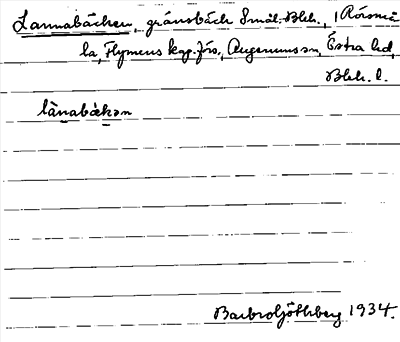 Lannabäcken, gränsbäck Smål.-Blek., i Rörsmå
la, Flymens kgf. förs., Augerums sn, Östra hd,
Blek. l.
lànabækən
Barbro Göthberg 1934.